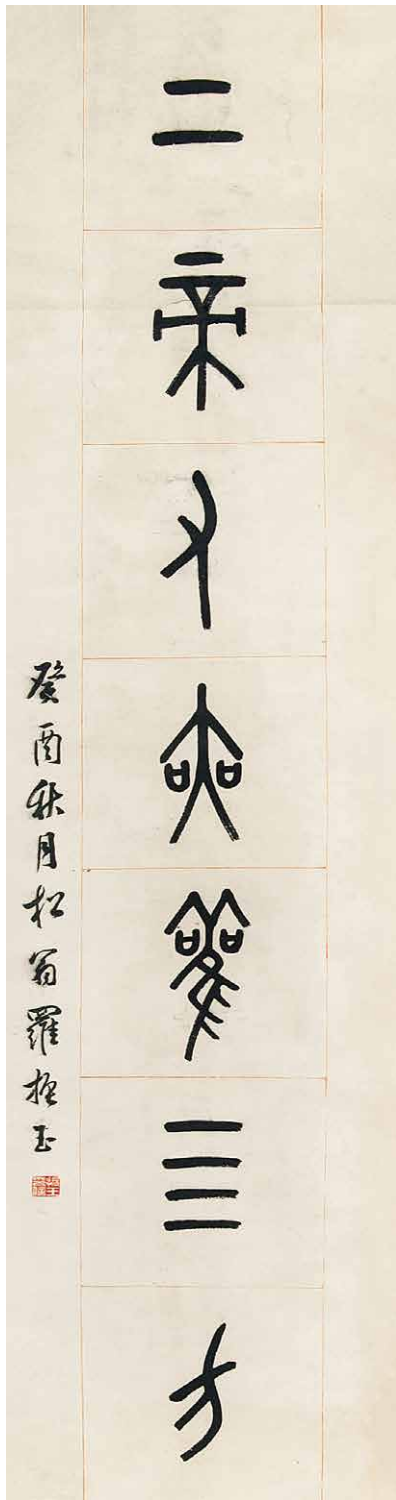 上帝又赫雚亖方
癸酉秋月松翁羅振玉